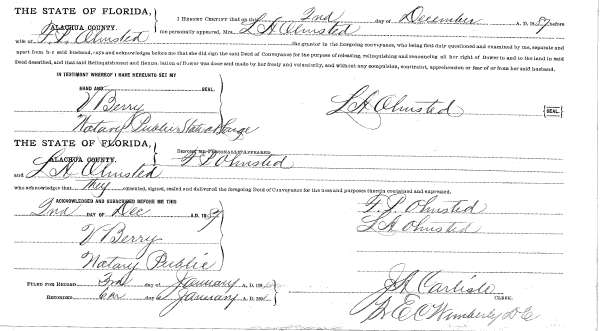 THE STATE OF FLORIDA,
ALACHUA COUNTY.
I HEREBY CERTIFY that on this 2nd day of December A. D. before
me personally appeared, Mrs. L H Olmsted
wife of F. L. Olmsted the grantor in the foregoing conveyance, who being first duly questioned and examined by me, separate and
apart from her said husband, says and acknowledges before me that she did sign the said Deed of Conveyance for the purpose of releasing, relinquishing and renouncing all her right of Dower in and to the land in said
Deed described, and that said Relinquishment and Renunciation of Dower was done and made by her freely and voluntarily, and without any compulsion, constraint, apprehension or fear of or from her said husband.
IN TESTIMONY WHEREOF I HAVE HEREUNTO SET MY
HAND AND SEAL.
V Berry
Notary Public State at Large
L H Olmsted {SEAL}
THE STATE OF FLORIDA,
ALACHUA COUNTY.
BEFORE ME PERSONALLY APPEARED
F L Olmsted
and L H Olmsted
who acknowledges that they executed, signed, sealed and delivered the foregoing Deed of Conveyance for the uses and purposes therein contained and expressed.
ACKNOWLEDGED AND SUBSCRIBED BEFORE ME THIS
2nd DAY OF Dec A.D.
V Berry
Notary Public
F. L. Olmsted
L H Olmsted
FILED FOR RECORD January A. D.
RECORDED day January A. D.
J A Carlisle
CLERK.
Wimberly D C